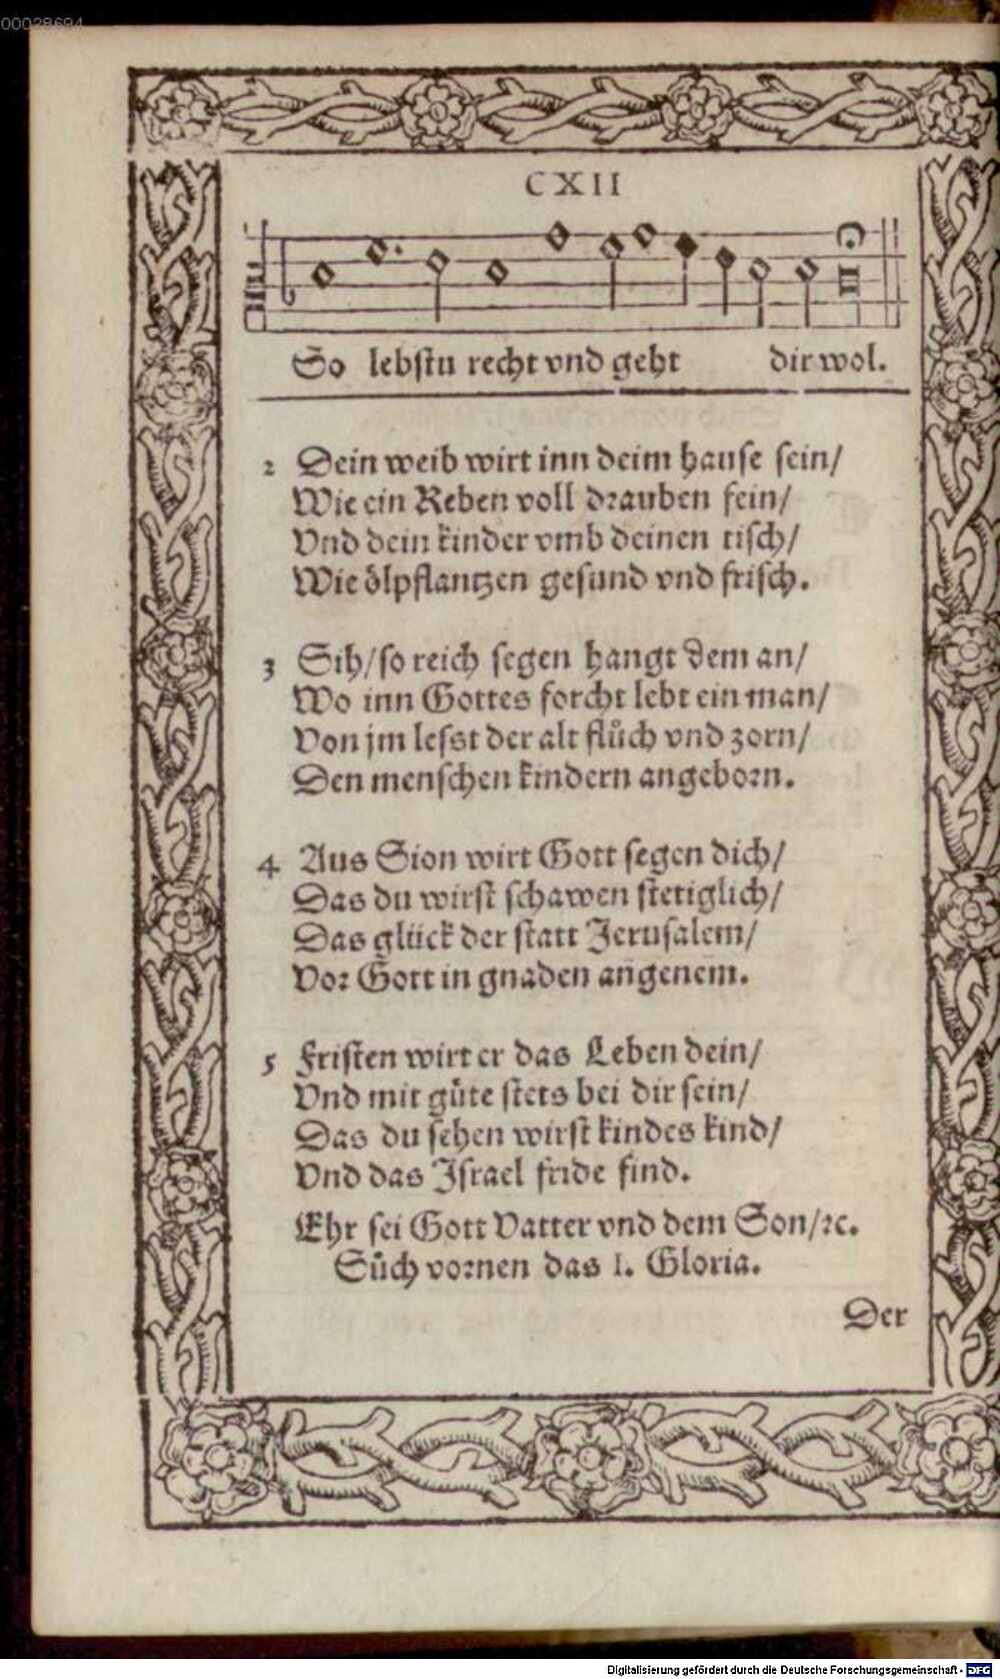 00028694
CXII
So lebstu recht vnd geht dir wol.
2 Dein weib wirt inn deim hause sein/
Wie ein Reben voll drauben fein/
Vnd dein kinder vmb deinen tisch/
Wie ölpflantzen gesund vnd frisch.
3 Sih/so reich segen hangt dem an/
Wo inn Gottes forcht lebt ein man/
Von jm lesst der alt flůch vnd zorn/
Den menschen kindern angeborn.
4 Aus Sion wirt Gott segen dich/
Das du wirst schawen stetiglich/
Das glück der statt Jerusalem/
Vor Gott in gnaden angenem.
5 Fristen wirt er das Leben dein/
Vnd mit güte stets bei dir sein/
Das du sehen wirst kindes kind/
Vnd das Israel fride find.
Ehr sei Gott Vatter vnd dem Son/ꝛc.
Sůch vornen das 1. Gloria.
Der
Digitalisierung gefördert durch die Deutsche Forschungsgemeinschaft - DFG